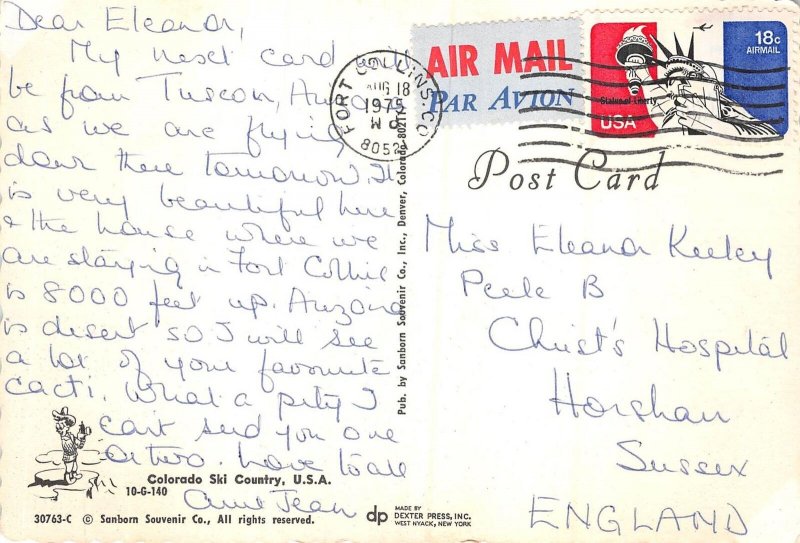 Dear Eleanor,
My next card will
be from Tuscon, Arizona
as we are flying
down there tomorrow. It
is very beautiful here
& the house where we
are staying in Fort Collins
is 8000 feet up. Arizona
is desert so I will see
a lot of your favourite
cacti. What a pity I
can't send you one
or two. Love to all
Aunt Jean
Colorado Ski Country, U.S.A.
10-G-140
30763-C © Sanborn Souvenir Co., All rights reserved.
Pub. by Sanborn Souvenir Co., Inc., Denver, Colorado 80211
dp
MADE BY
DEXTER PRESS, INC.
WEST NYACK, NEW YORK
FORT COLLINS, CO
AUG 18
1975
8052
AIR MAIL
PAR AVION
18c
AIRMAIL
Statue of Liberty
USA
Post Card
Miss Eleanor Keeley
Peele B
Christ's Hospital
Horsham
Sussex
ENGLAND